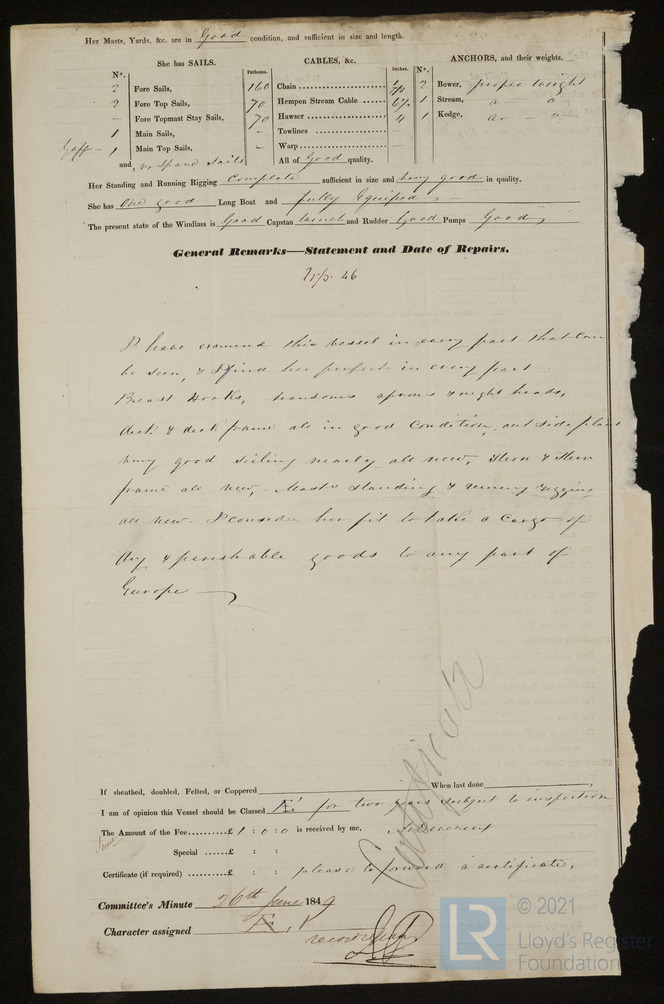 Her Masts, Yards, &c. are in Good condition, and sufficient in size and length.
She has SAILS.
CABLES, &c.
ANCHORS, and their weights.
Nº.
Fathoms.
Inches.
Nº.
2 Fore Sails,
160 Chain
2 Bower, proper weight
2 Fore Top Sails,
70 Hempen Stream Cable 6½
1 Stream,
— Fore Topmast Stay Sails,
70 Hawser 4
1 Kedge,
1 Main Sails,
— Towlines —
Gaff — 1 Main Top Sails,
— Warp —
and no spare sails
All of Good quality.
Her Standing and Running Rigging Complete sufficient in size and very good in quality.
She has One good Long Boat and fully Equiped
The present state of the Windlass is Good Capstan and Rudder Good Pumps Good
General Remarks—Statement and Date of Repairs.
I have examind this vessel in every part that can
be seen, & I find her perfect in every part
Breast Hooks, transoms aprons & night heads,
deck & deck frame all in good Condition, out side plans
very good Sieling nearly all new, Stern & Stern
frame all new, - Masts standing & runing rigging
all new - I consider her fit to take a Cargo of
dry & perishable goods to any part of
Europe
Certificate
If sheathed, doubled, Felted, or Coppered When last done
I am of opinion this Vessel should be Classed Æ1 for two years subject to inspection
The Amount of the Fee...........£ 1 : 0 : 0 is received by me,
Special ......£ : :
Certificate (if required) ..........£ : : please to forward a certificate,
Committee's Minute 26th June 1849
Character assigned Æ 1
LR
© 2021
Lloyd's Register
Foundation